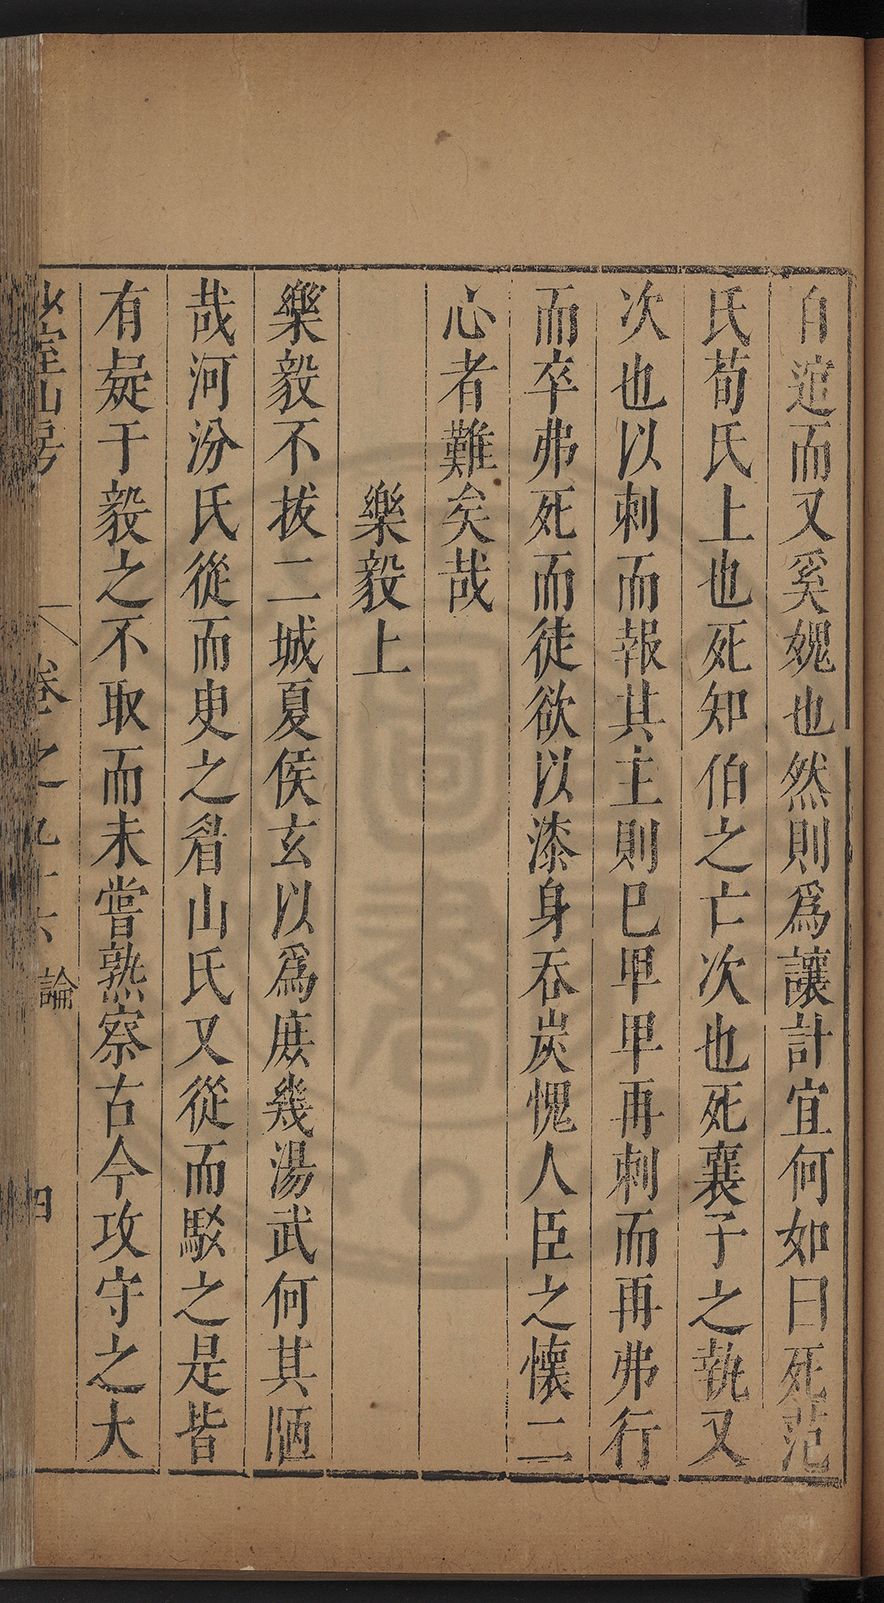 自逭而又奚媿也然則爲讓計宜何如曰死范
氏荀氏上也死知伯之亡次也死襄子之執又
次也以刺而報其主則已卑卑再刺而再弗行
而卒弗死而徒欲以漆身吞炭愧人臣之懷二
心者難矣哉
樂毅上
樂毅不拔二城夏侯玄以爲庶幾湯武何其陋
哉河汾氏從而史之眉山氏又從而駁之是皆
有疑于毅之不取而未嘗熟察古今攻守之大
少室山房
卷之九十六
論
四